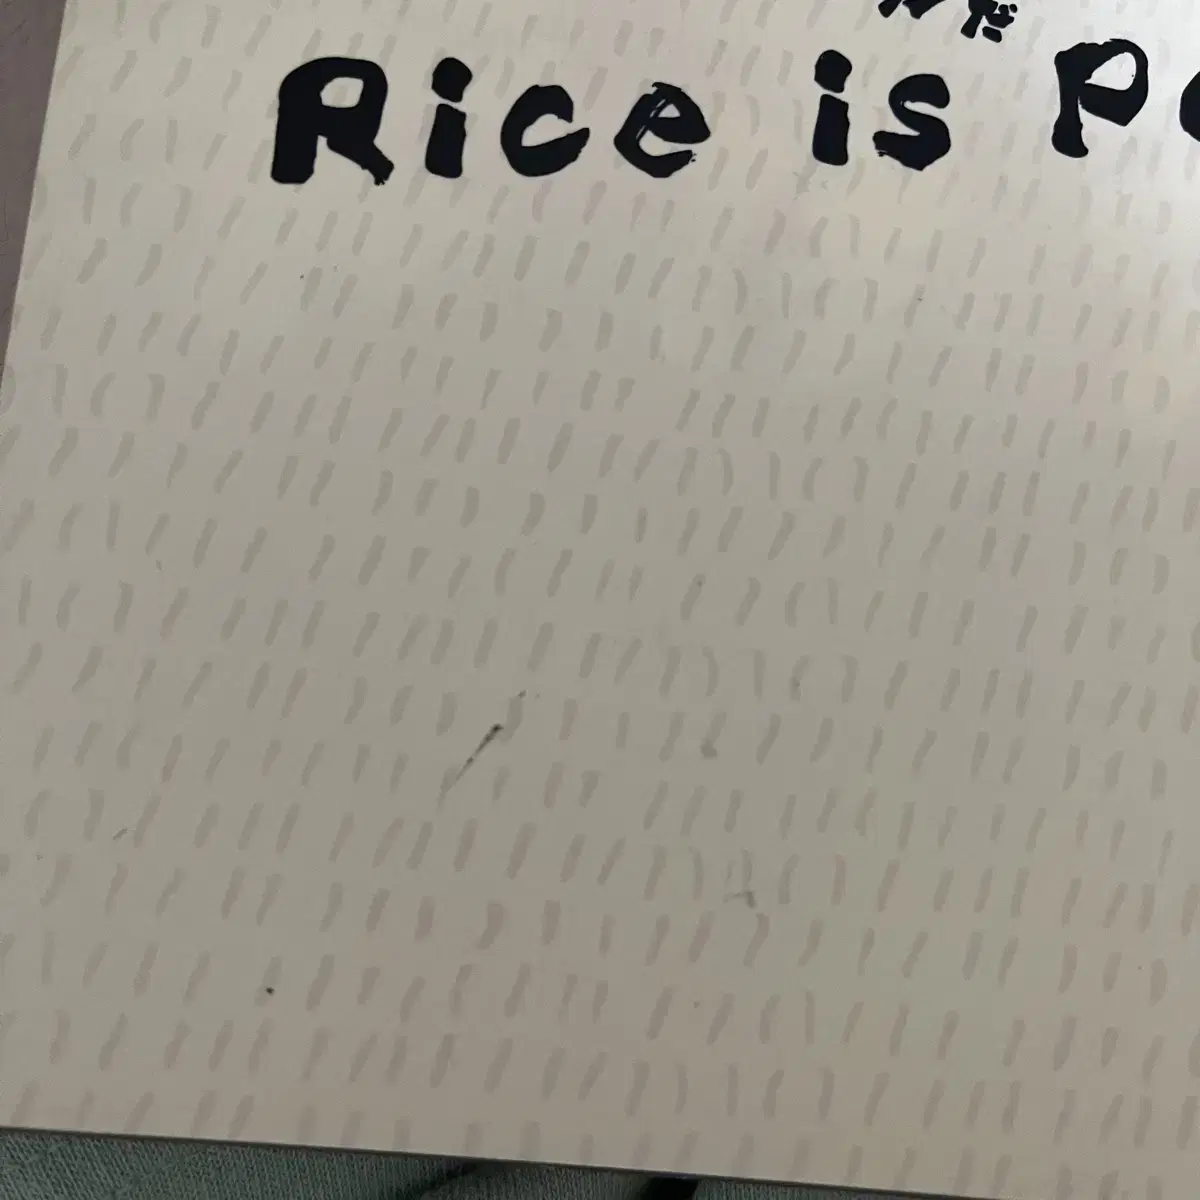 だ
Rice is